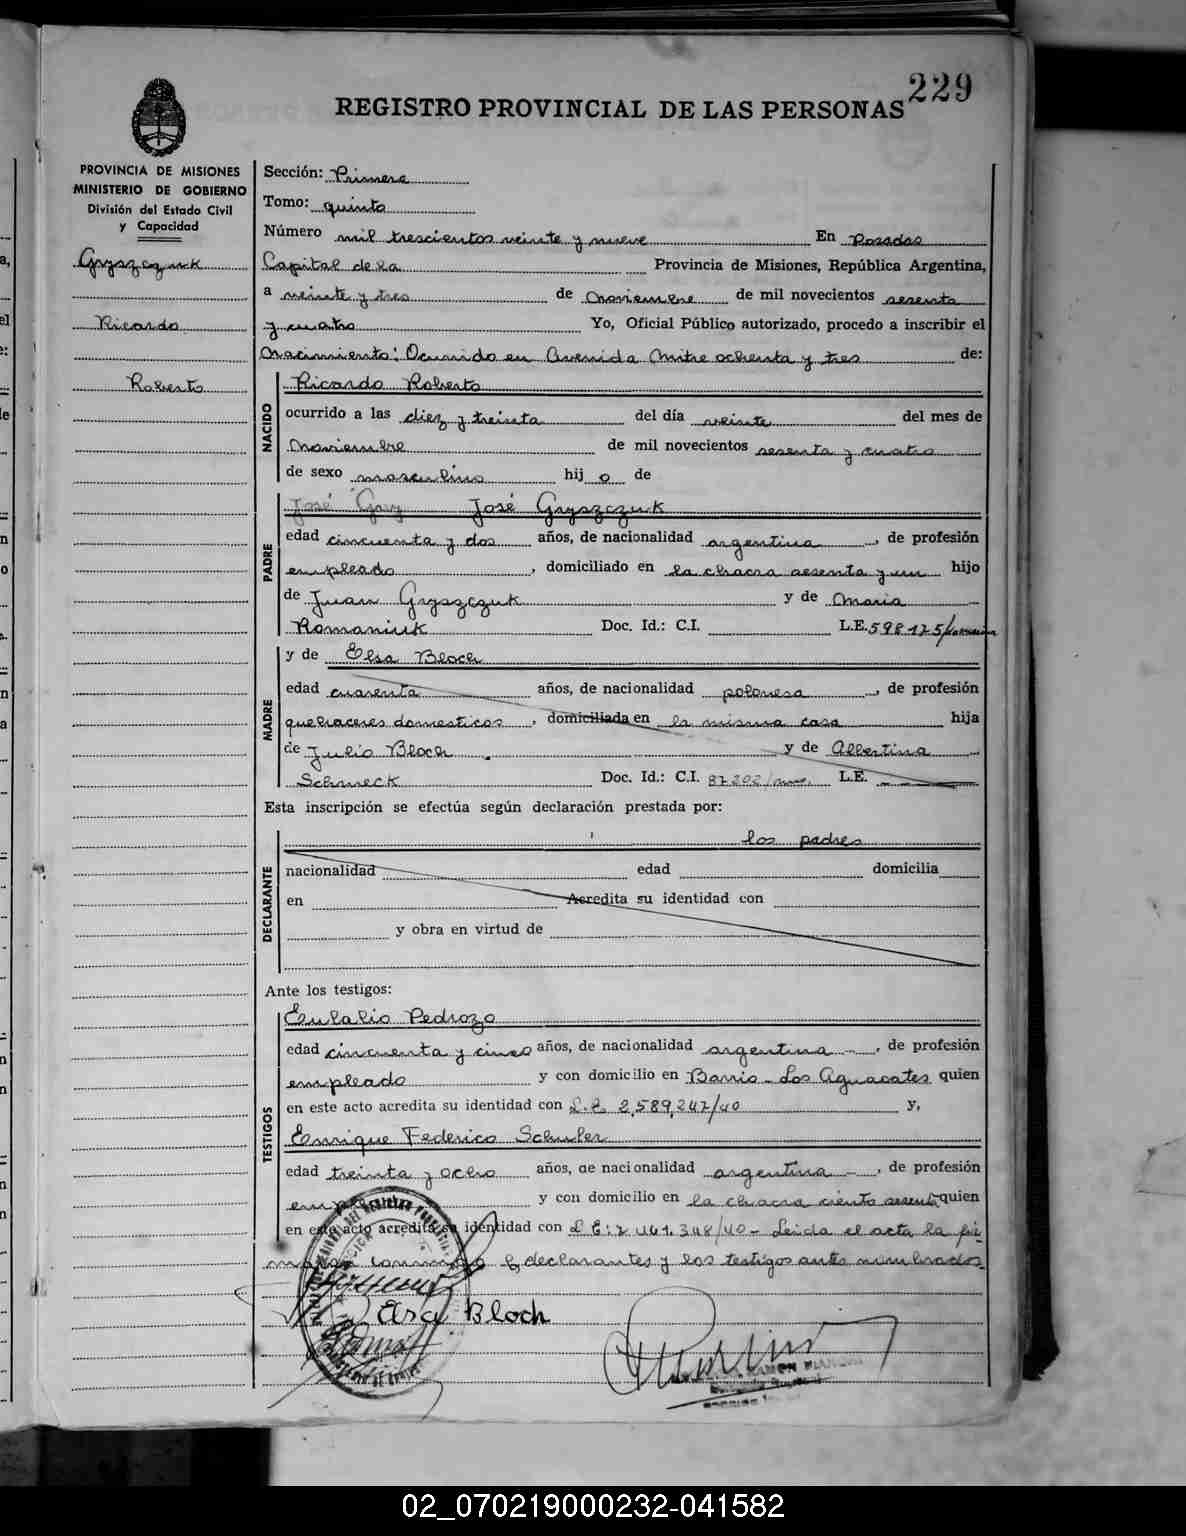 229
REGISTRO PROVINCIAL DE LAS PERSONAS
PROVINCIA DE MISIONES
MINISTERIO DE GOBIERNO
División del Estado Civil
y Capacidad
Gryszczuk
Ricardo
Roberto
Sección: Primera
Tomo: quinto
Número mil trescientos veinte y nueve En Posadas
Capital de la Provincia de Misiones, República Argentina,
a veinte y tres de noviembre de mil novecientos sesenta
y cuatro Yo, Oficial Público autorizado, procedo a inscribir el
nacimiento: Ocurrido en Avenida Mitre ochenta y tres de:
NACIDO
Ricardo Roberto
ocurrido a las diez y treinta del día veinte del mes de
noviembre de mil novecientos sesenta y cuatro
de sexo masculino hij o de
PADRE
José Gry José Gryszczuk
edad cincuenta y dos años, de nacionalidad argentina, de profesión
empleado, domiciliado en la chacra sesenta y un hijo
de Juan Gryszczuk y de Maria
Romaniuk Doc. Id.: C.I. L.E. 598175/
MADRE
y de Elsa Bloch
edad cuarenta años, de nacionalidad polonesa, de profesión
quehaceres domesticos, domiciliada en la misma casa hija
de Julio Bloch y de Albertina
Schmeck Doc. Id.: C.I. 87202/mnes. L.E.
Esta inscripción se efectúa según declaración prestada por:
DECLARANTE
los padres
nacionalidad edad domicilia
en Acredita su identidad con
y obra en virtud de
Ante los testigos:
TESTIGOS
Eulalio Pedrozo
edad cincuenta y cinco años, de nacionalidad argentina, de profesión
empleado y con domicilio en Barrio Los Aguacates quien
en este acto acredita su identidad con L.E. 2,589,247/40 y,
Enrique Federico Schuler
edad treinta y ocho años, de nacionalidad argentina, de profesión
y con domicilio en la chacra ciento sesenta quien
en este acto acredita su identidad con L E: 7 461.348/40 - Leida el acta la fir
man conmigo declarantes y los testigos antes nombrados
Elsa Bloch
RAMON
02_070219000232-041582